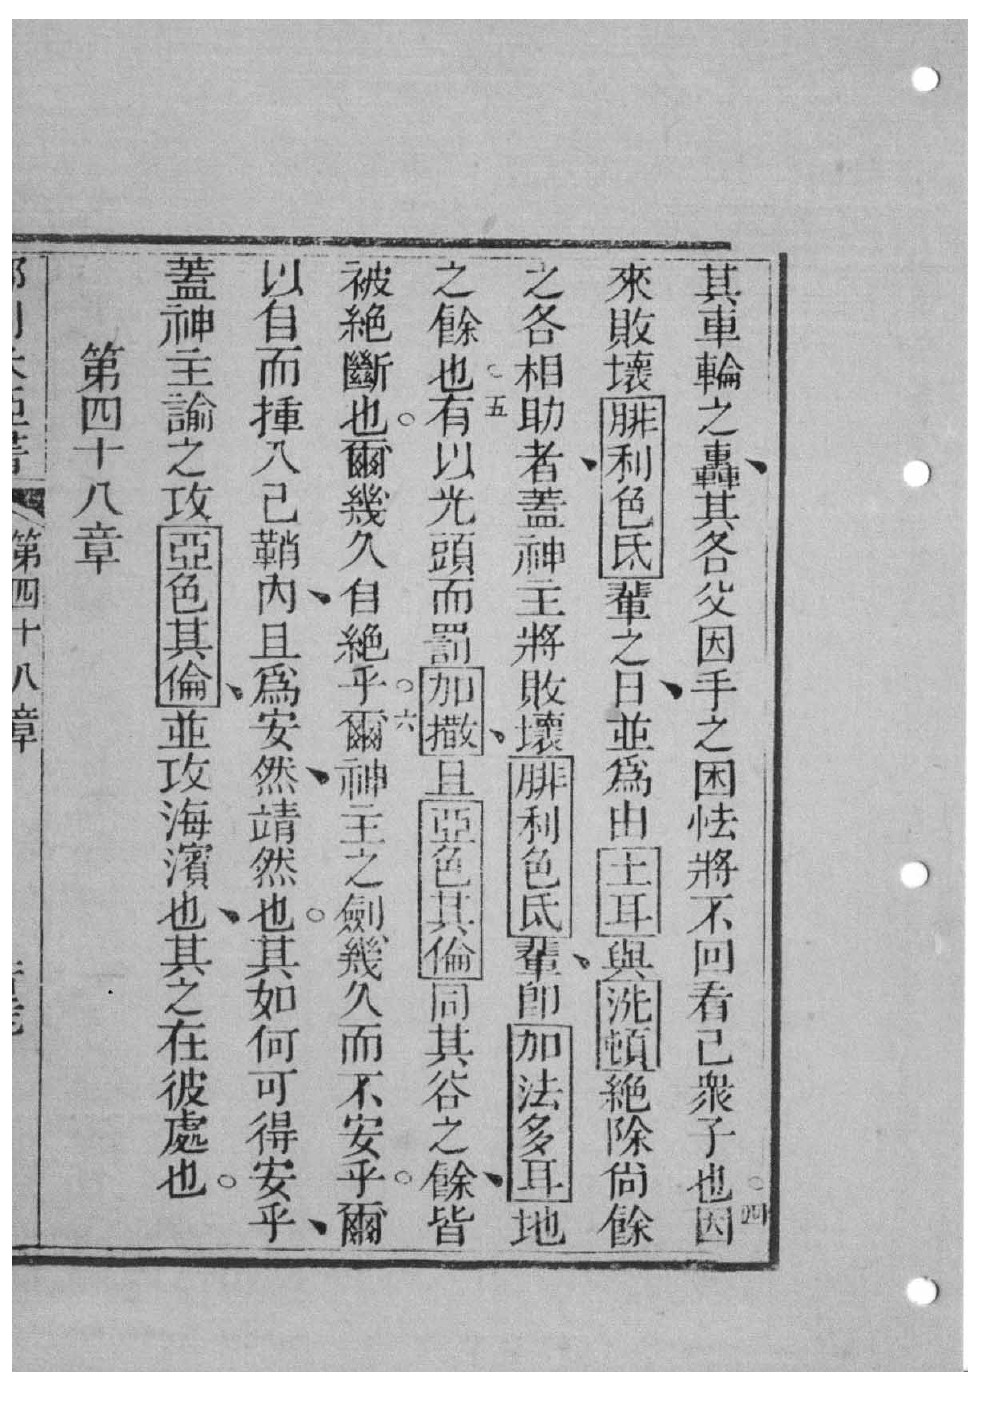 其車輪之轟、其各父因手之困怯將不回看己衆子也。四因
來敗壞腓利色氐輩之日、並爲由土耳與洗頓絶除尙餘
之各相助者、蓋神主將敗壞腓利色氐輩、卽加法多耳地
之餘也。五有以光頭而罰加撒、且亞色其倫同其谷之餘、皆
被絶斷也。爾幾久自絶乎。六爾神主之劍幾久而不安乎。爾
以自而揰入己鞘內、且爲安然、靖然也。其如何可得安乎、
蓋神主諭之攻亞色其倫、並攻海濱也、其之在彼處也。
第四十八章
第四十八章